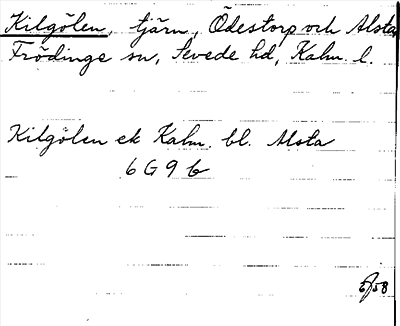 Kilgölen, tjärn, Ödestorp och Alsta,
Frödinge sn, Sevede hd, Kalm. l.
Kilgölen ek Kalm. bl. Alsta
6 G 9 b